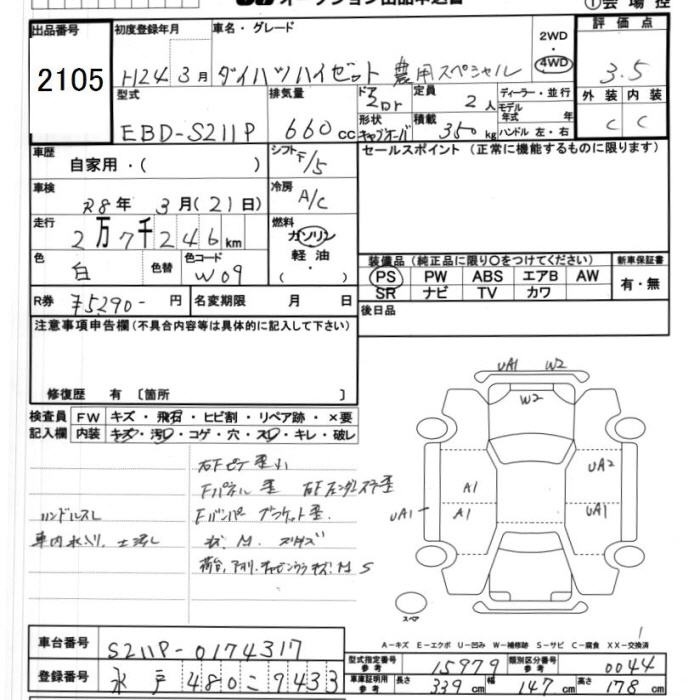 オークション出品申込書 ①会場控
出品番号 初度登録年月 車名・グレード 2WD 評価点
2105 H24 3月 ダイハツハイゼット 農用スペシャル 4WD 3.5
型式 排気量 ドア 2Dr 定員 2人 ディーラー・並行 外装 内装
モデル年式 年
EBD-S211P 660cc 形状 積載 350kg ハンドル 左・右 C C
車歴 シフト F/5 セールスポイント (正常に機能するものに限ります)
自家用・( )
車検 冷房
R8年 3月(21日) A/C
走行 燃料
2万7千246km ガソリン
軽油
色 色替 色コード ・( ) 装備品 (純正品に限り○をつけてください) 新車保証書
白 W09 PS PW ABS エアB AW 有・無
SR ナビ TV カワ
R券 ¥5,290- 円 名変期限 月 日 後日品
注意事項申告欄(不具合内容等は具体的に記入して下さい)
修復歴 有 〔箇所 〕
UA1 W2
W2
検査員 FW キズ・飛石・ヒビ割・リペア跡・×要
記入欄 内装 キズ・汚れ・コゲ・穴・スレ・キレ・破レ
UA2
A1
UA1 A1 UA1
ハンドルスレ Fバンパ ブラケット歪
スペア
A-キズ E-エクボ U-凹み W-補修跡 S-サビ C-腐食 XX-交換済
車台番号 S211P-0174317
型式指定番号 参考 15979 類別区分番号 参考 0044
登録番号 水戸 480 2 9433
車庫証明用 参考 長さ 339cm 幅 147cm 高さ 178cm